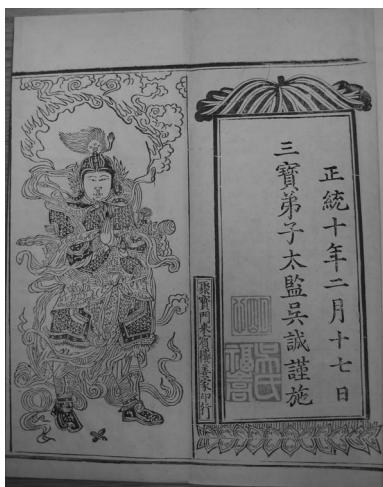 正統十年二月十七日
三寶弟子太監吳誠謹施
聚寶門來賓樓姜家印行